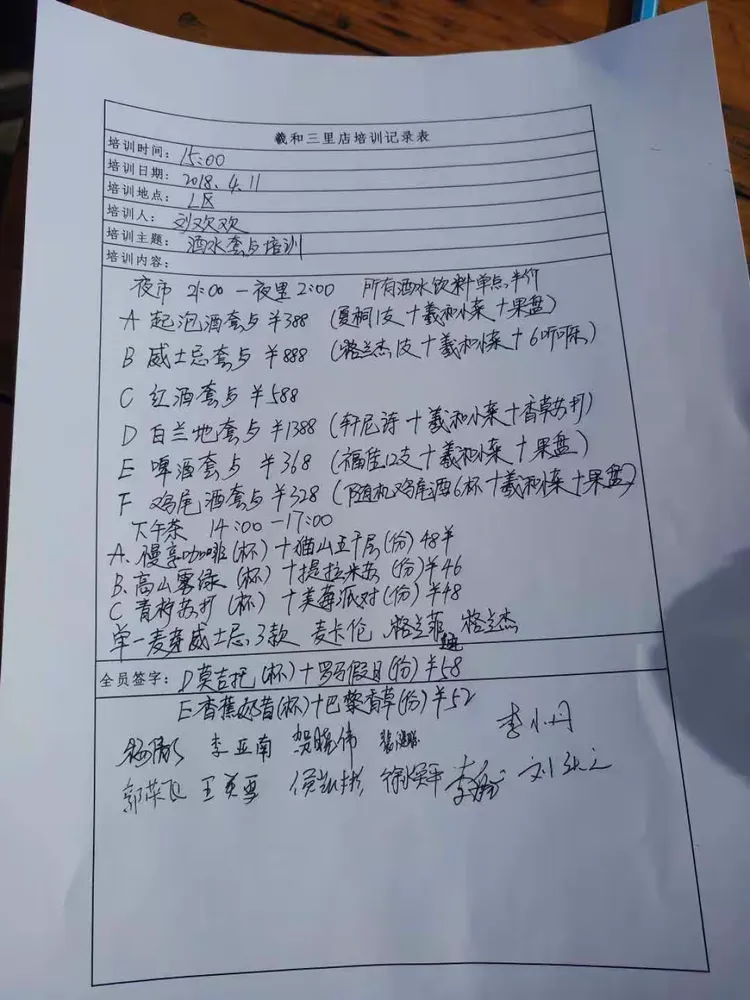 羲和三里店培训记录表
培训时间: 15:00
培训日期: 2018.4.11
培训地点: L区
培训人: 刘欢欢
培训主题: 酒水套与培训
培训内容:
夜市 21:00 — 夜里 2:00 所有酒水饮料单点,半价
A 起泡酒套与 ¥388 (夏桐1支 + 羲和小菜 + 果盘)
B 威士忌套与 ¥888 (格兰杰1支 + 羲和小菜 + 6听可乐)
C 红酒套与 ¥588
D 白兰地套与 ¥1388 (轩尼诗 + 羲和小菜 + 香草苏打)
E 啤酒套与 ¥368 (福佳12支 + 羲和小菜 + 果盘)
F 鸡尾酒套与 ¥328 (随机鸡尾酒6杯 + 羲和小菜 + 果盘)
下午茶 14:00 — 17:00
A. 慢享咖啡(杯) + 猫山王千层(份) 48¥
B. 高山雾绿(杯) + 提拉米苏(份) ¥46
C 青柠苏打(杯) + 美莓派对(份) ¥48
单一麦芽威士忌,3款 麦卡伦 格兰菲迪 格兰杰
全员签字: D莫吉托(杯) + 罗马假日(份) ¥58
E.香蕉奶昔(杯) + 巴黎香草(份) ¥52
李亚南 贺晓伟 李小丹
王英雪